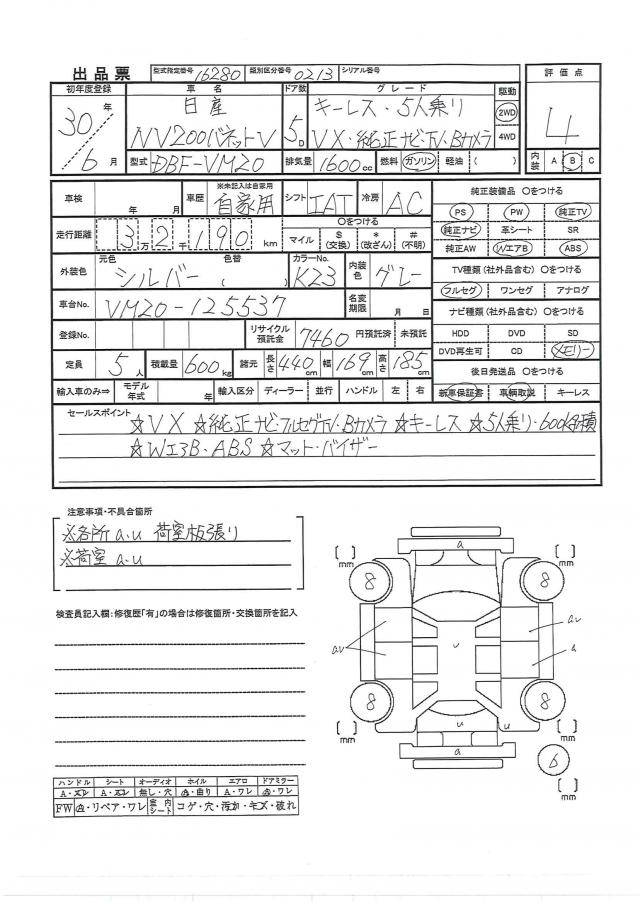 出品票 型式指定番号 16280 類別区分番号 0213 シリアル番号
初年度登録 車名 ドア数 グレード 駆動 評価点
30年 日産 5D キーレス・5人乗り 2WD 4
NV200バネットV VX・純正ナビ・TV・Bカメラ 4WD
6月 型式 DBF-VM20 排気量 1600cc 燃料 ガソリン 軽油 ( ) 内装 A B C
車検 年 月 車歴 ※未記入は自家用 自家用 シフト IAT 冷房 AC 純正装備品 〇をつける
PS PW 純正TV
走行距離 3万2千190km 〇をつける マイル $(交換) *(改ざん) #(不明) 純正ナビ 革シート SR
純正AW WエアB ABS
外装色 元色 シルバー 色替 ( ) カラーNo. K23 内装色 グレー TV種類(社外品含む) 〇をつける
フルセグ ワンセグ アナログ
車台No. VM20-125537 名変期限 月 日 ナビ種類(社外品含む) 〇をつける
登録No. リサイクル預託金 7460 円預託済 未預託 HDD DVD SD
DVD再生可 CD メモリー
定員 5人 積載量 600kg 諸元 長さ 440cm 幅 169cm 高さ 185cm 後日発送品 〇をつける
輸入車のみ⇒ モデル年式 年 輸入区分 ディーラー 並行 ハンドル 左 右 新車保証書 車輌取説 キーレス
セールスポイント
☆VX ☆純正ナビ・フルセグTV・Bカメラ ☆キーレス ☆5人乗り・600kg積
☆WエアB・ABS ☆マット・バイザー
注意事項・不具合箇所
※各所 a.u 荷室板張り
※荷室 a.u
検査員記入欄:修復歴「有」の場合は修復箇所・交換箇所を記入
[ ] mm [ ] mm
a
8 8
au u au
a
8 8
u u
[ ] mm a [ ] mm
6
[ ] mm
ハンドル シート オーディオ ホイル エアロ ドアミラー
A・スレ A・スレ 無し・穴 a・曲り A・ワレ a・ワレ
FW a・リペア・ワレ 室内シート コゲ・穴・汚れ・キズ・破れ